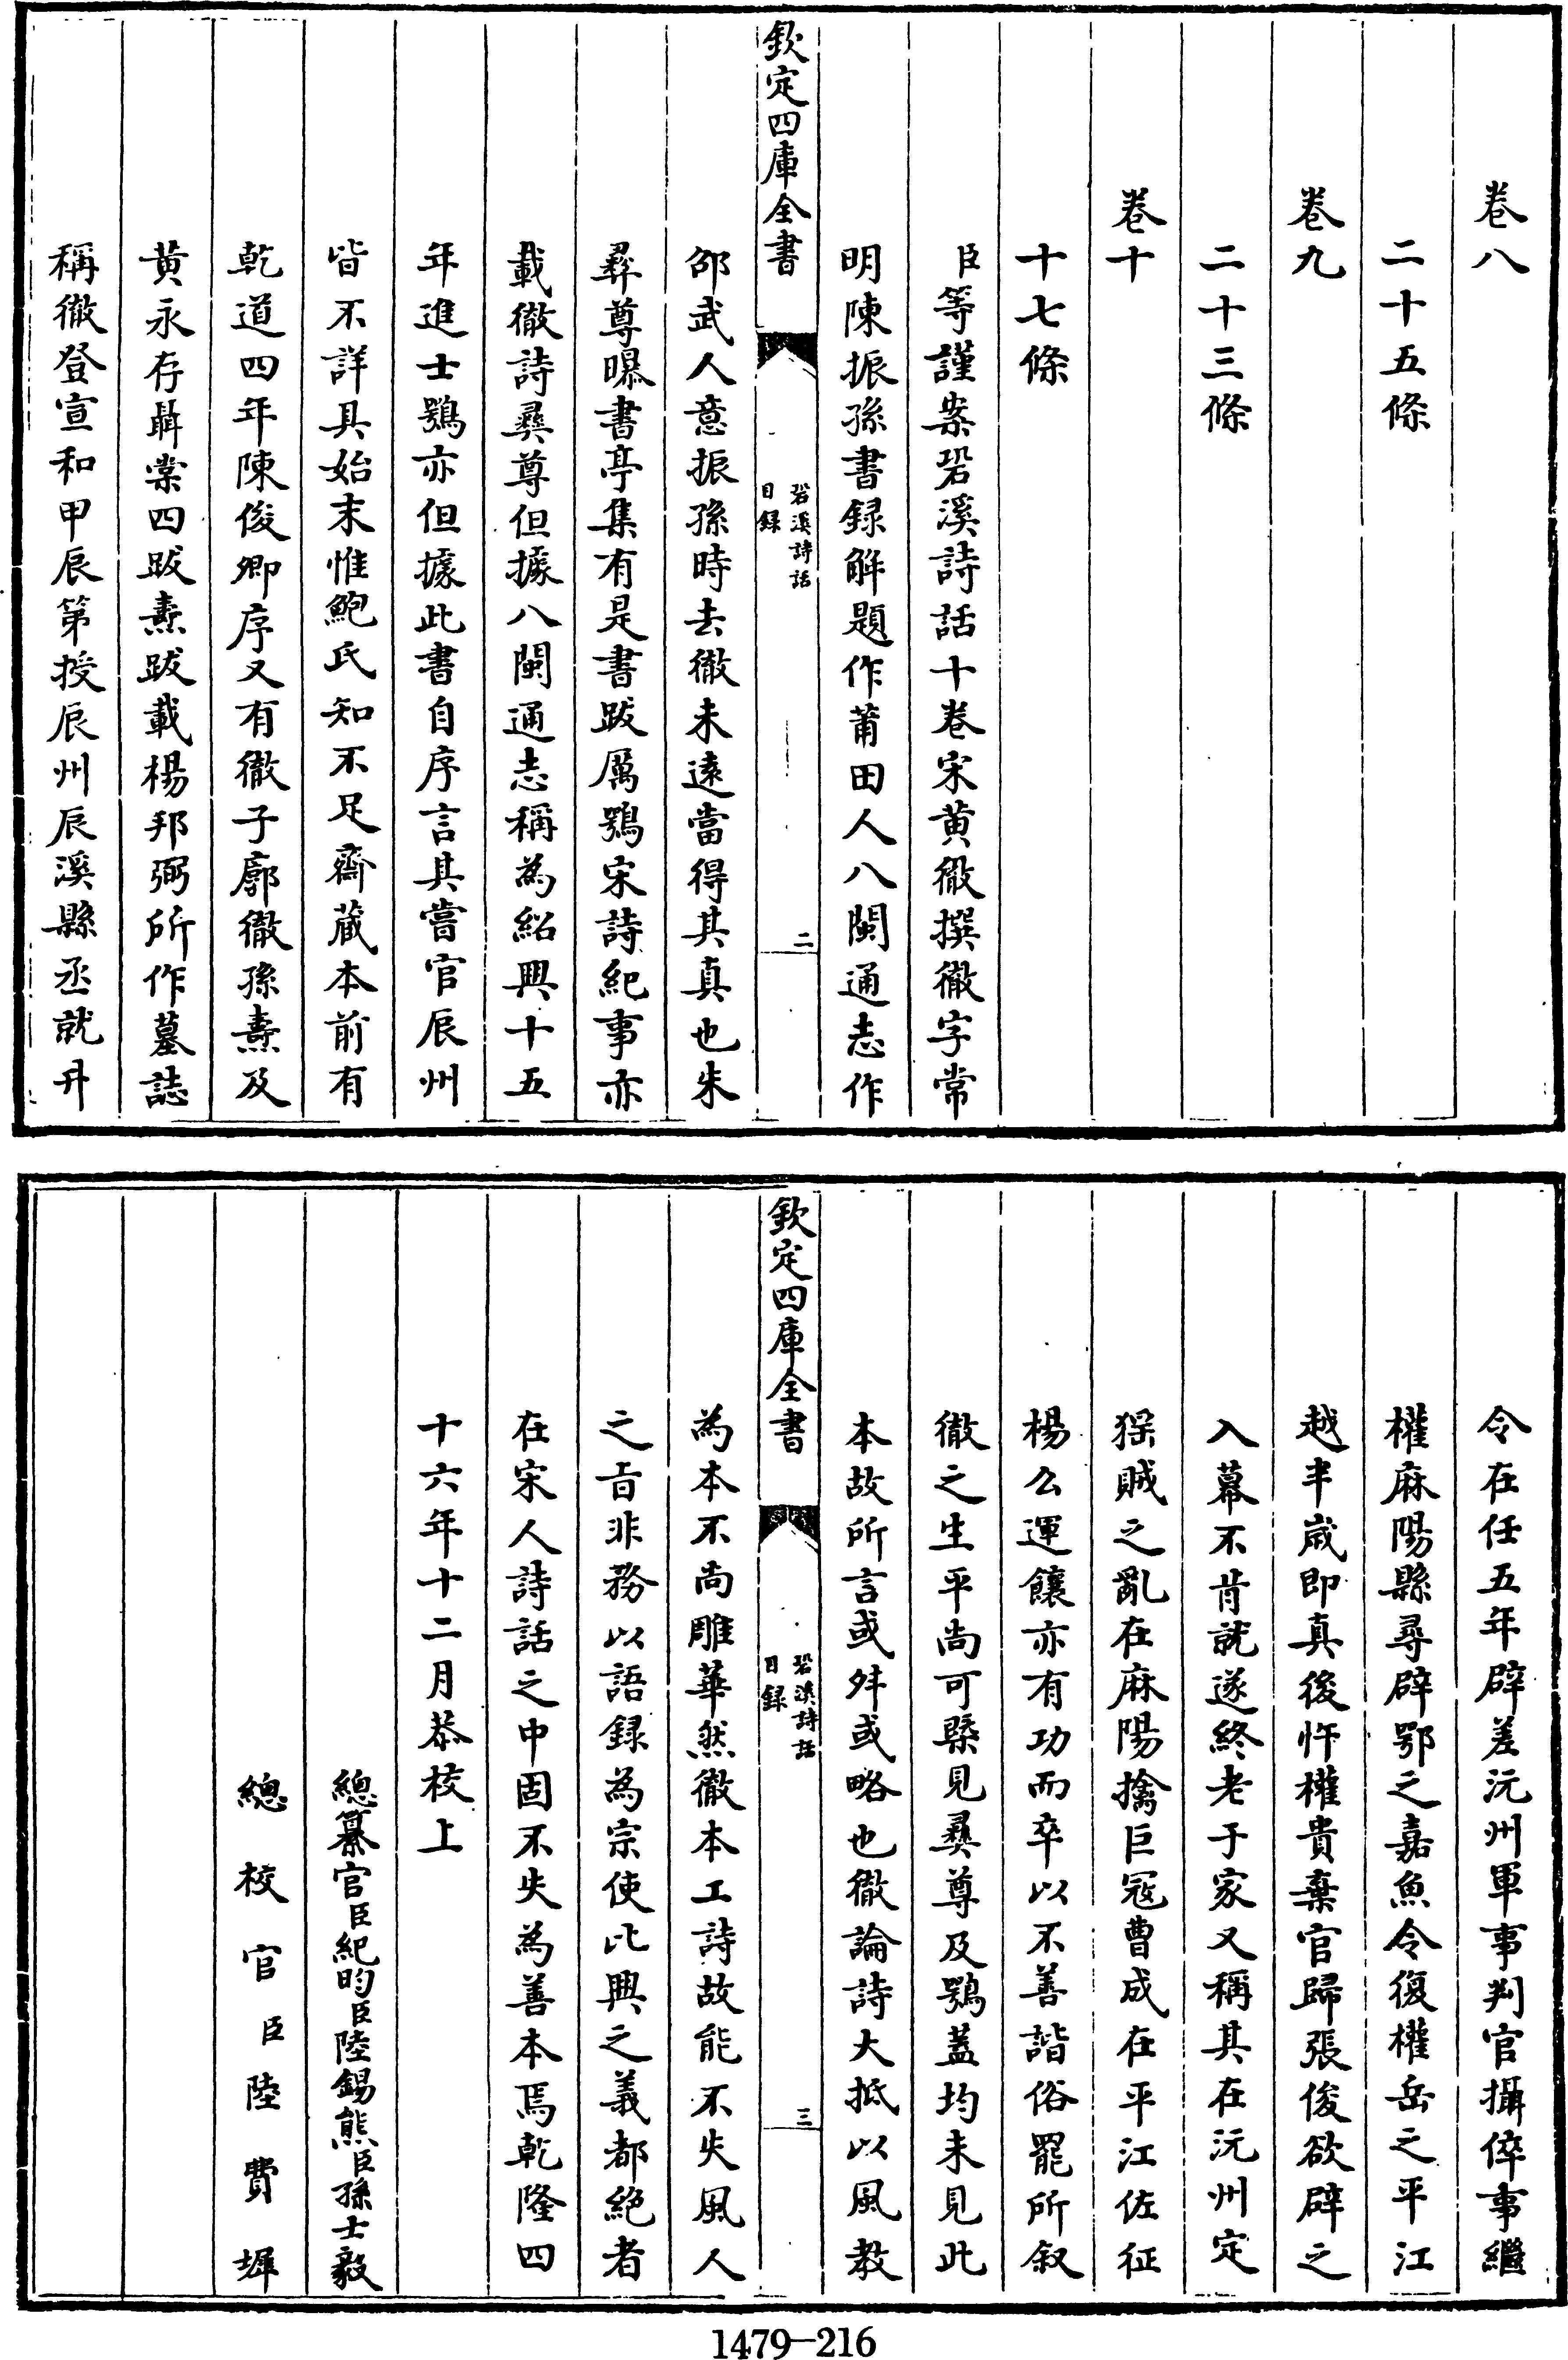 卷八
二十五條
卷九
二十三條
卷十
十七條
臣等謹案䂬溪詩話十卷宋黄徹撰徹字常
明陳振孫書録解題作莆田人八閩通志作
欽定四庫全書
䂬溪詩話
目録
二
邵武人意振孫時去徹未遠當得其真也朱
彛尊曝書亭集有是書跋厲鶚宋詩紀事亦
載徹詩彛尊但據八閩通志稱為紹興十五
年進士鶚亦但據此書自序言其嘗官辰州
皆不詳具始末惟鮑氏知不足齋藏本前有
乾道四年陳俊卿序又有徹子廓徹孫燾及
黄永存聶棠四跋燾跋載楊邦弼所作墓誌
稱徹登宣和甲辰第授辰州辰溪縣丞就升
令在任五年辟差沅州軍事判官攝倅事繼
權麻陽縣尋辟鄂之嘉魚令復權岳之平江
越半歳即真後忤權貴棄官歸張俊欲辟之
入幕不肯就遂終老于家又稱其在沅州定
猺賊之亂在麻陽擒巨寇曹成在平江佐征
楊么運饟亦有功而卒以不善諧俗罷所叙
徹之生平尚可槩見彛尊及鶚蓋均未見此
本故所言或舛或略也徹論詩大抵以風教
欽定四庫全書
䂬溪詩話
目録
三
為本不尚雕華然徹本工詩故能不失風人
之旨非務以語録為宗使比興之義都絶者
在宋人詩話之中固不失為善本焉乾隆四
十六年十二月恭校上
總纂官臣紀昀臣陸錫熊臣孫士毅
總校官臣陸費墀
1479-216